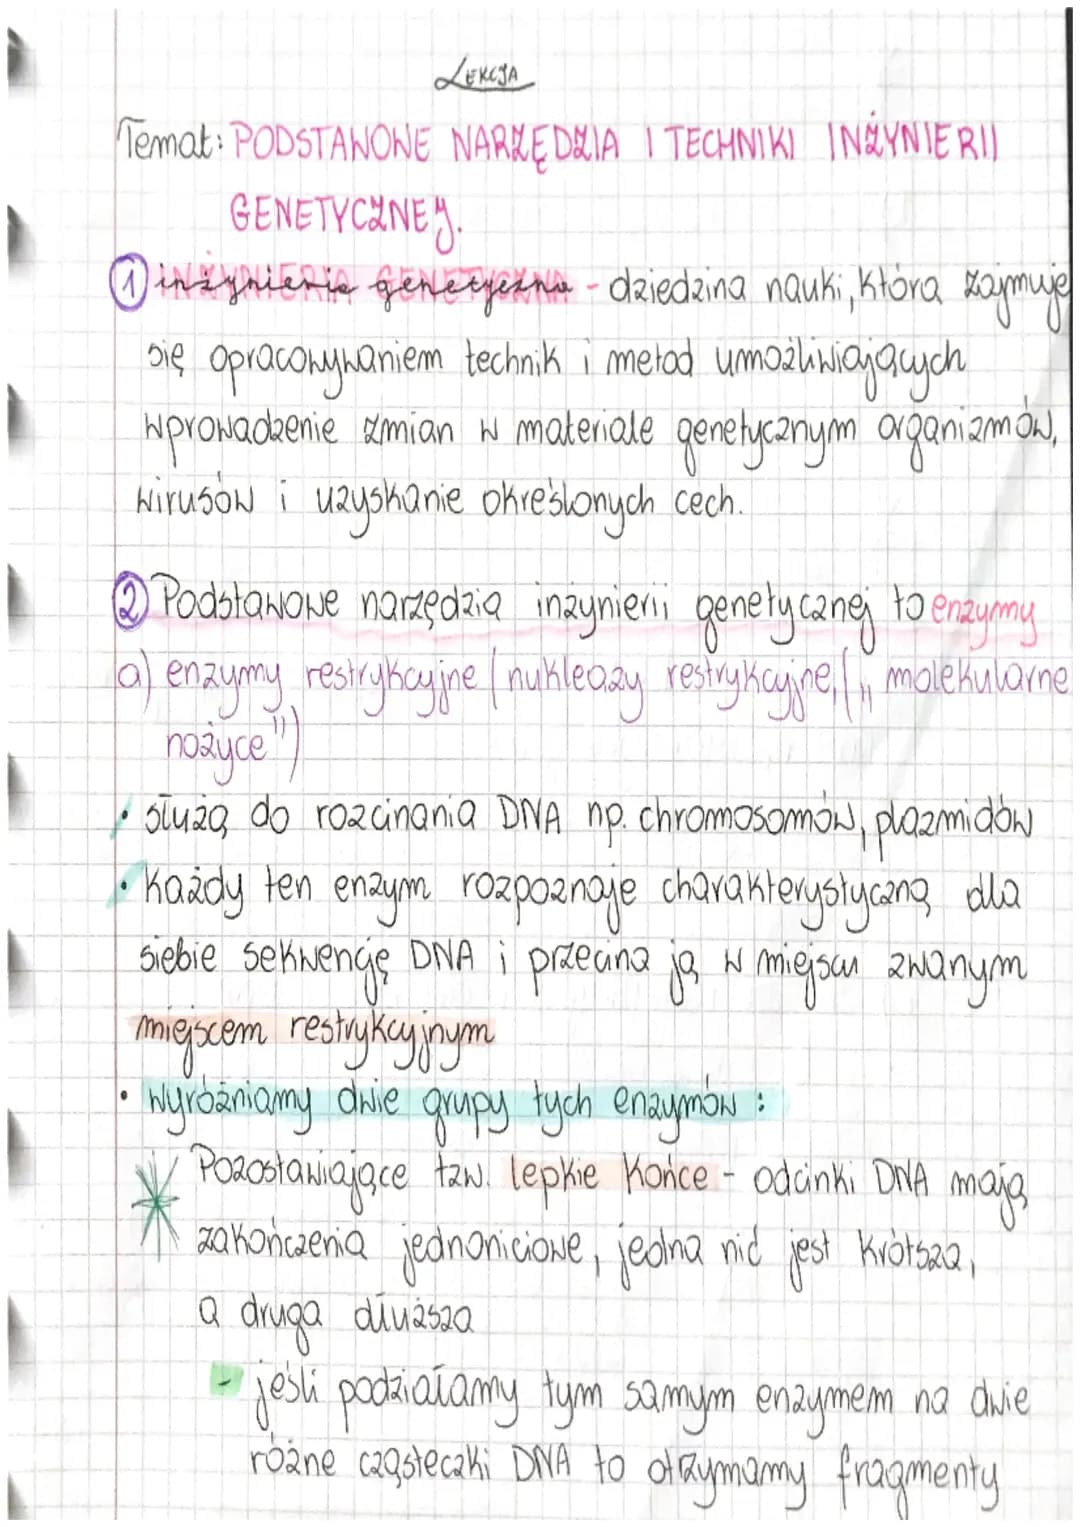 LEKCJA
Temat: PODSTAWOWE NARZĘDZIA I TECHNIKI INŻYNIERII
GENETYCZNEJ.
① inżynieria genetyczna - dziedzina nauki, która zajmuje
się opracowywaniem technik i metod umożliwiających
wprowadzenie zmian w materiale genetycznym organizmów,
wirusów i uzyskanie określonych cech.
② Podstawowe narzędzia inżynierii genetycznej to enzymy
a) enzymy restrykcyjne (nukleazy restrykcyjne, („ molekularne
nożyce")
• służą do rozcinania DNA np. chromosomów, plazmidów
• Każdy ten enzym rozpoznaje charakterystyczną dla
siebie sekwencję DNA i przecina ją w miejscu zwanym
miejscem restrykcyjnym
• wyróżniamy dwie grupy tych enzymów :
Pozostawiające tzw. lepkie końce - odcinki DNA mają
zakończenia jednoniciowe, jedna nić jest krótsza,
a druga dłuższa
- jeśli podziałamy tym samym enzymem na dwie
różne cząsteczki DNA to otrzymamy fragmenty